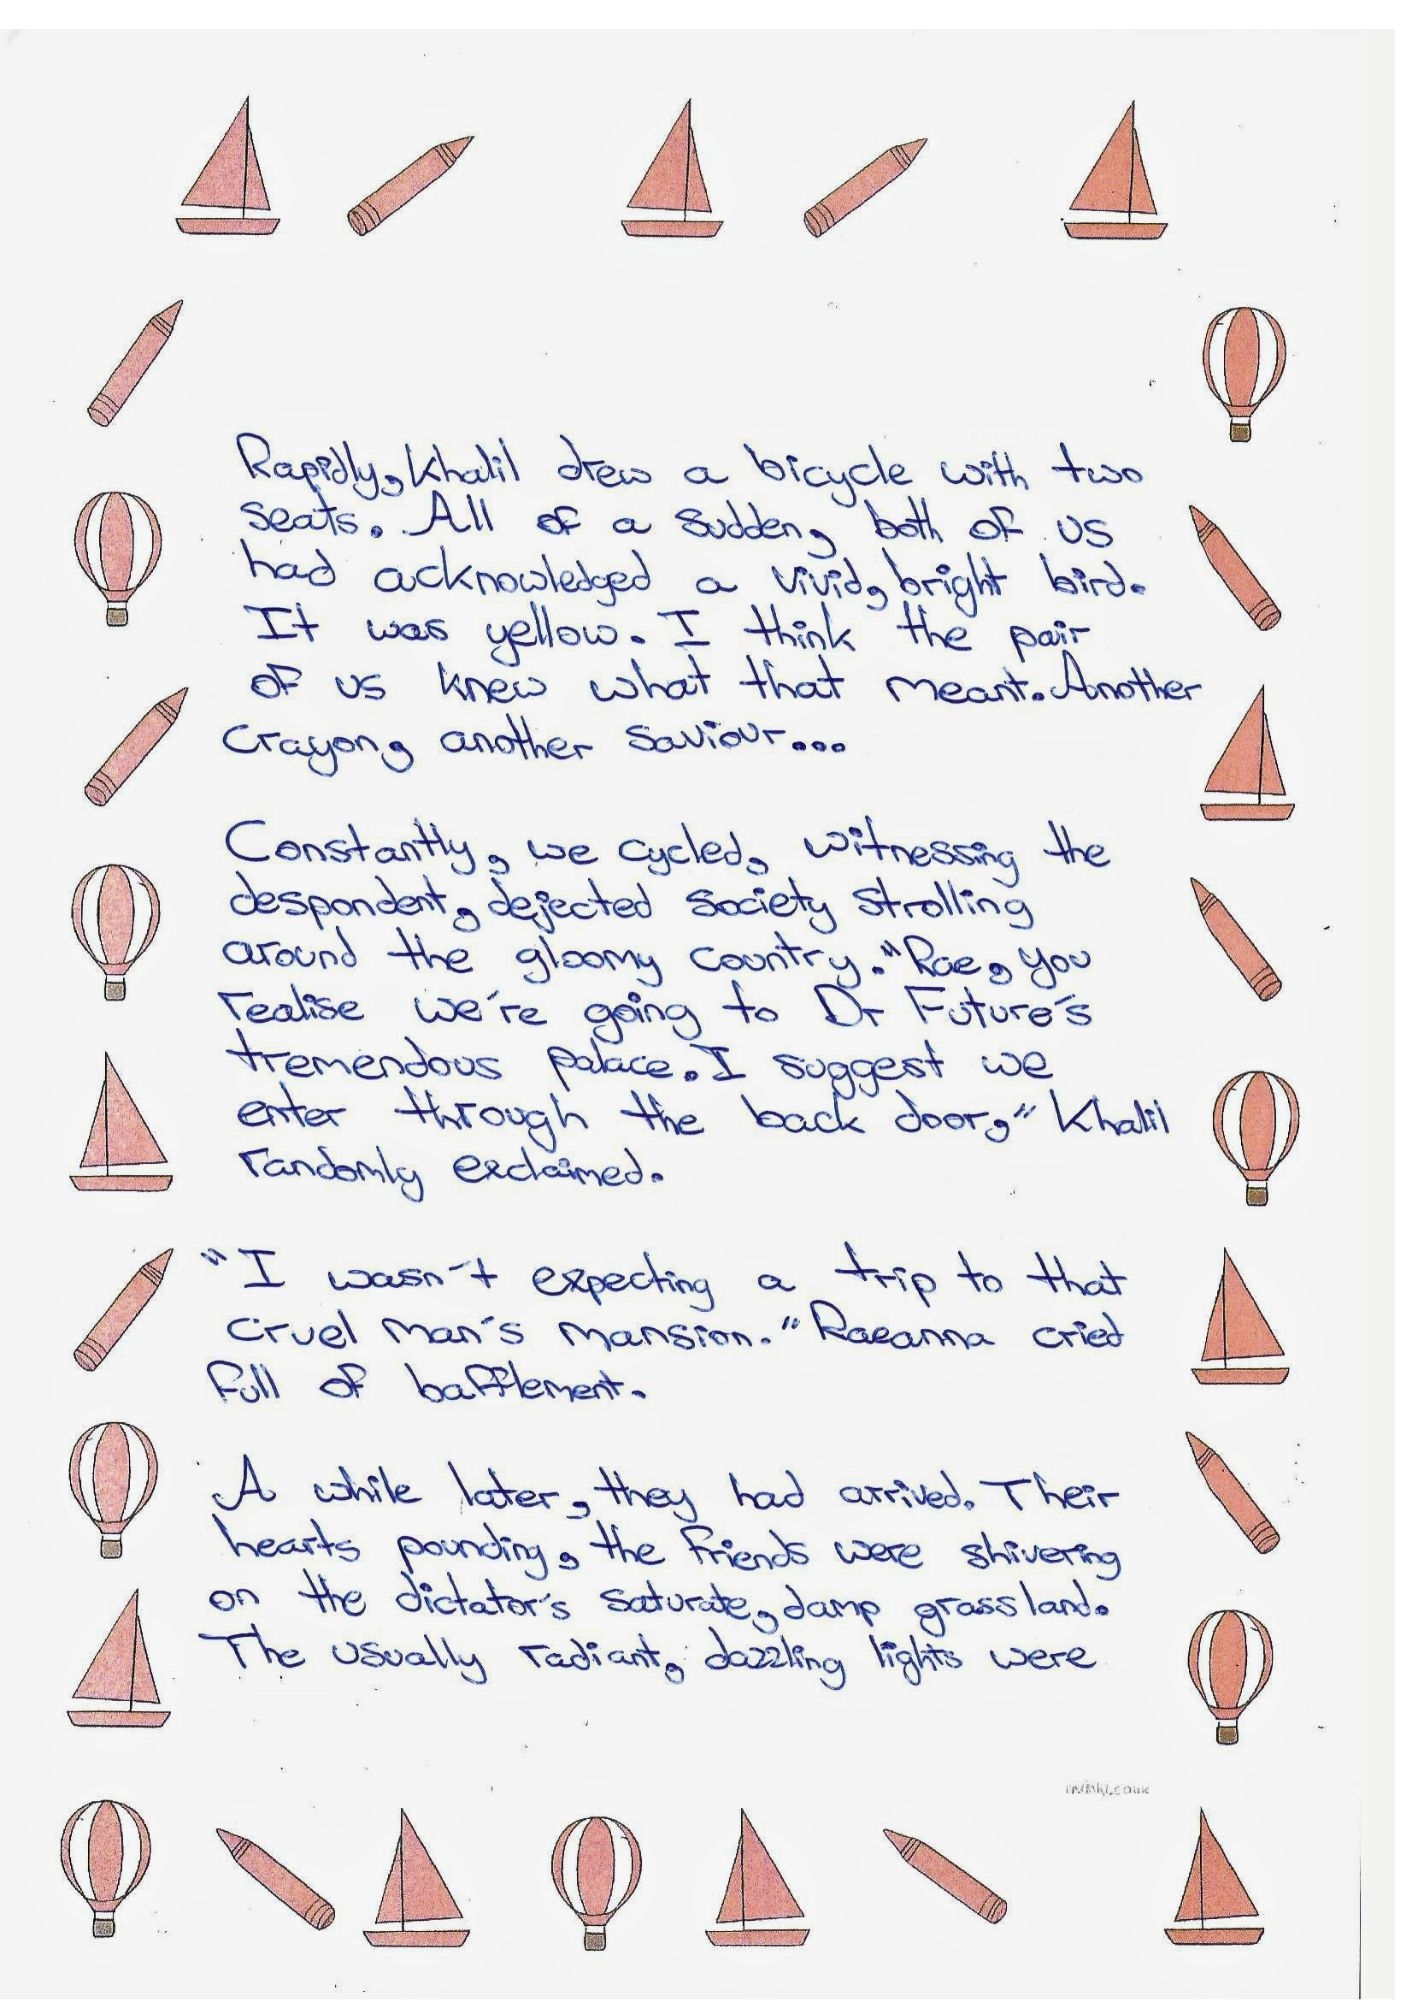 Rapidly, Khalil drew a bicycle with two
seats. All of a sudden, both of us
had acknowledged a vivid, bright bird.
It was yellow. I think the pair
of us knew what that meant. Another
crayon, another saviour...
Constantly, we cycled, witnessing the
despondent, dejected society strolling
around the gloomy country. "Rae, you
realise we're going to Dr Future's
tremendous palace. I suggest we
enter through the back door," Khalil
randomly exclaimed.
"I wasn't expecting a trip to that
cruel man's mansion." Raeanna cried
full of bafflement.
A while later, they had arrived. Their
hearts pounding, the friends were shivering
on the dictator's saturate, damp grassland.
The usually radiant, dazzling lights were